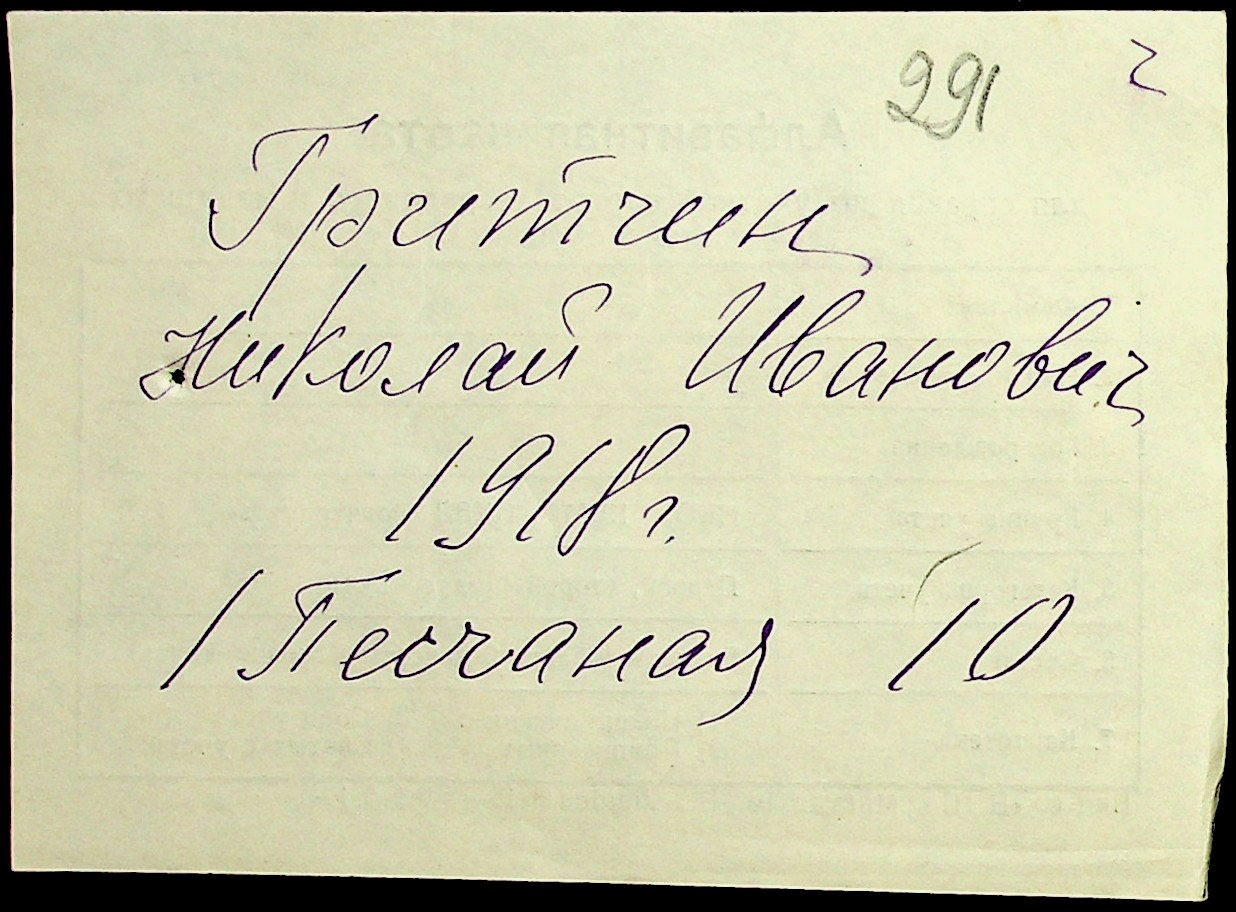 291 г
Гритчин
Николай Иванович
1918 г.
1 Песчаная 10